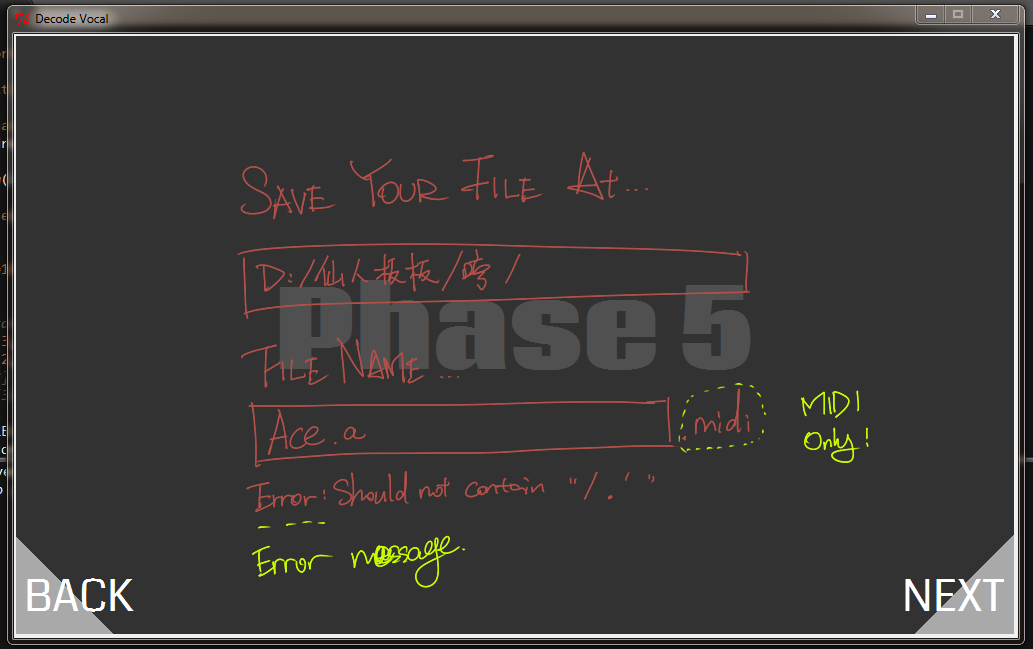 Decode Vocal
SAVE YOUR FILE At...
D://仙人板板/哼/
Phase 5
FILE NAME...
Ace.a
.midi
MIDI
Only!
Error: Should not contain "/.' "
Error message.
BACK
NEXT